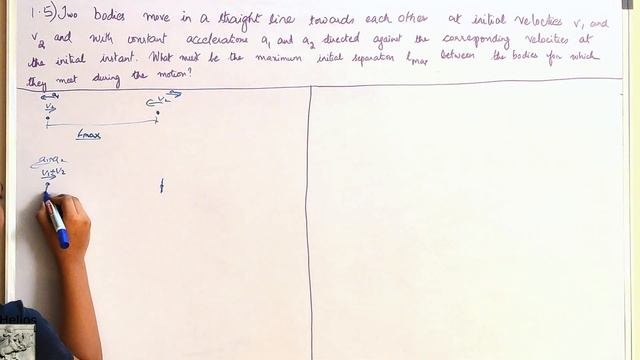 1.5) Two bodies move in a straight line towards each other at initial velocities v₁ and
v₂ and with constant accelerations a₁ and a₂ directed against the corresponding velocities at
the initial instant. What must be the maximum initial separation lmax between the bodies for which
they meet during the motion?
a₁
V₁ V₂
Lmax
a₁+a₂
V₁+V₂
Helios